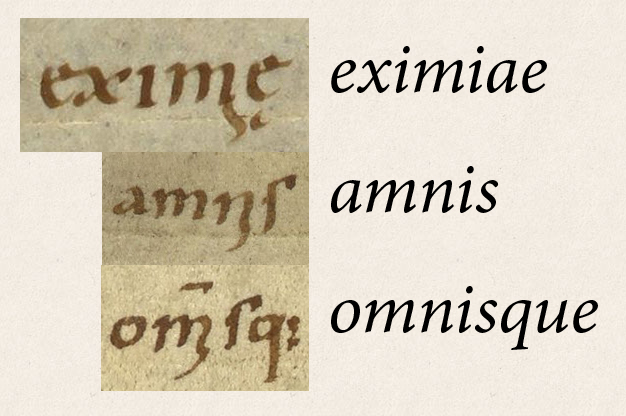 eximę eximiae
amnis amnis
om̅sq; omnisque